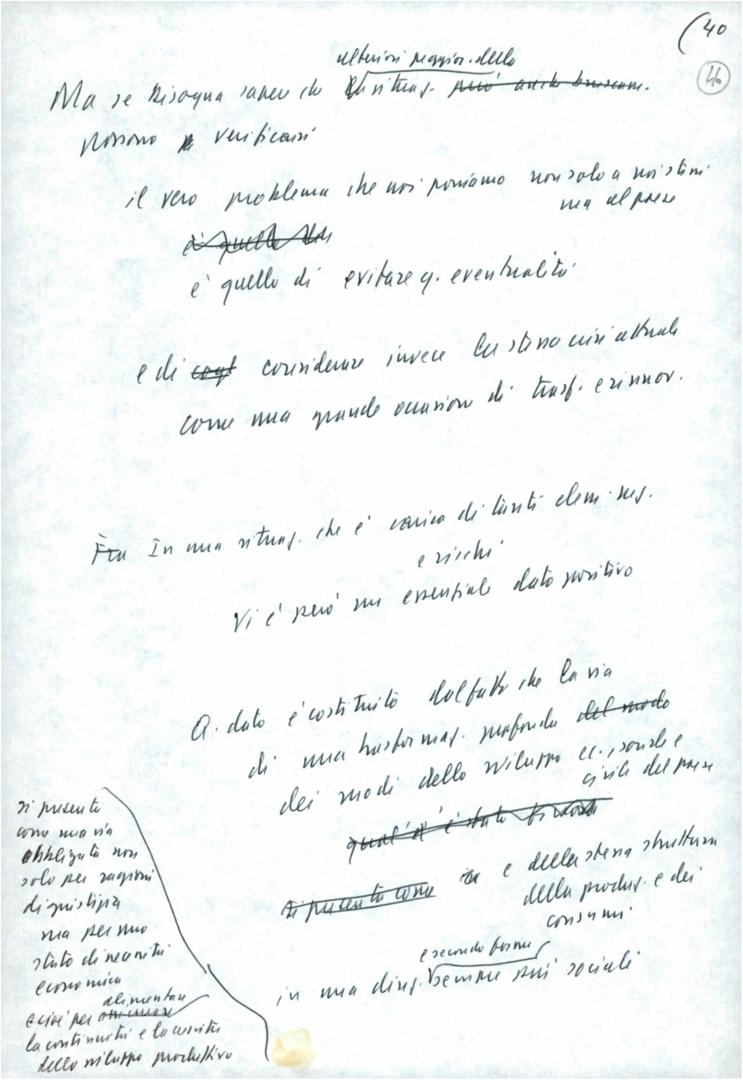 (40
46
ulteriori peggior. della
Ma se bisogna sapere che situaz. può anche
possono verificarsi
il vero problema che noi poniamo non solo a noi stessi
ma al paese
è quello di evitare q. eventualità
e di considerare invece la stessa crisi attuale
come una grande occasione di trasf. e rinnov.
Fra In una situaz. che è carica di tanti elem. neg.
e rischi
Vi è però un essenziale dato positivo
Q. dato è costituito dal fatto che la via
di una trasformaz. profonda del modo
dei modi dello sviluppo ec., sociale e
civile del paese
qual'è è stato finora
si presenta come e della stessa struttura
della produz. e dei
consumi
e secondo forme
in una direz. sempre più sociali
si presenta
come una via
obbligata non
solo per ragioni
di giustizia
ma per uno
stato di necessità
economica
alimentare
e cioè per
la continuità e la crescita
dello sviluppo produttivo